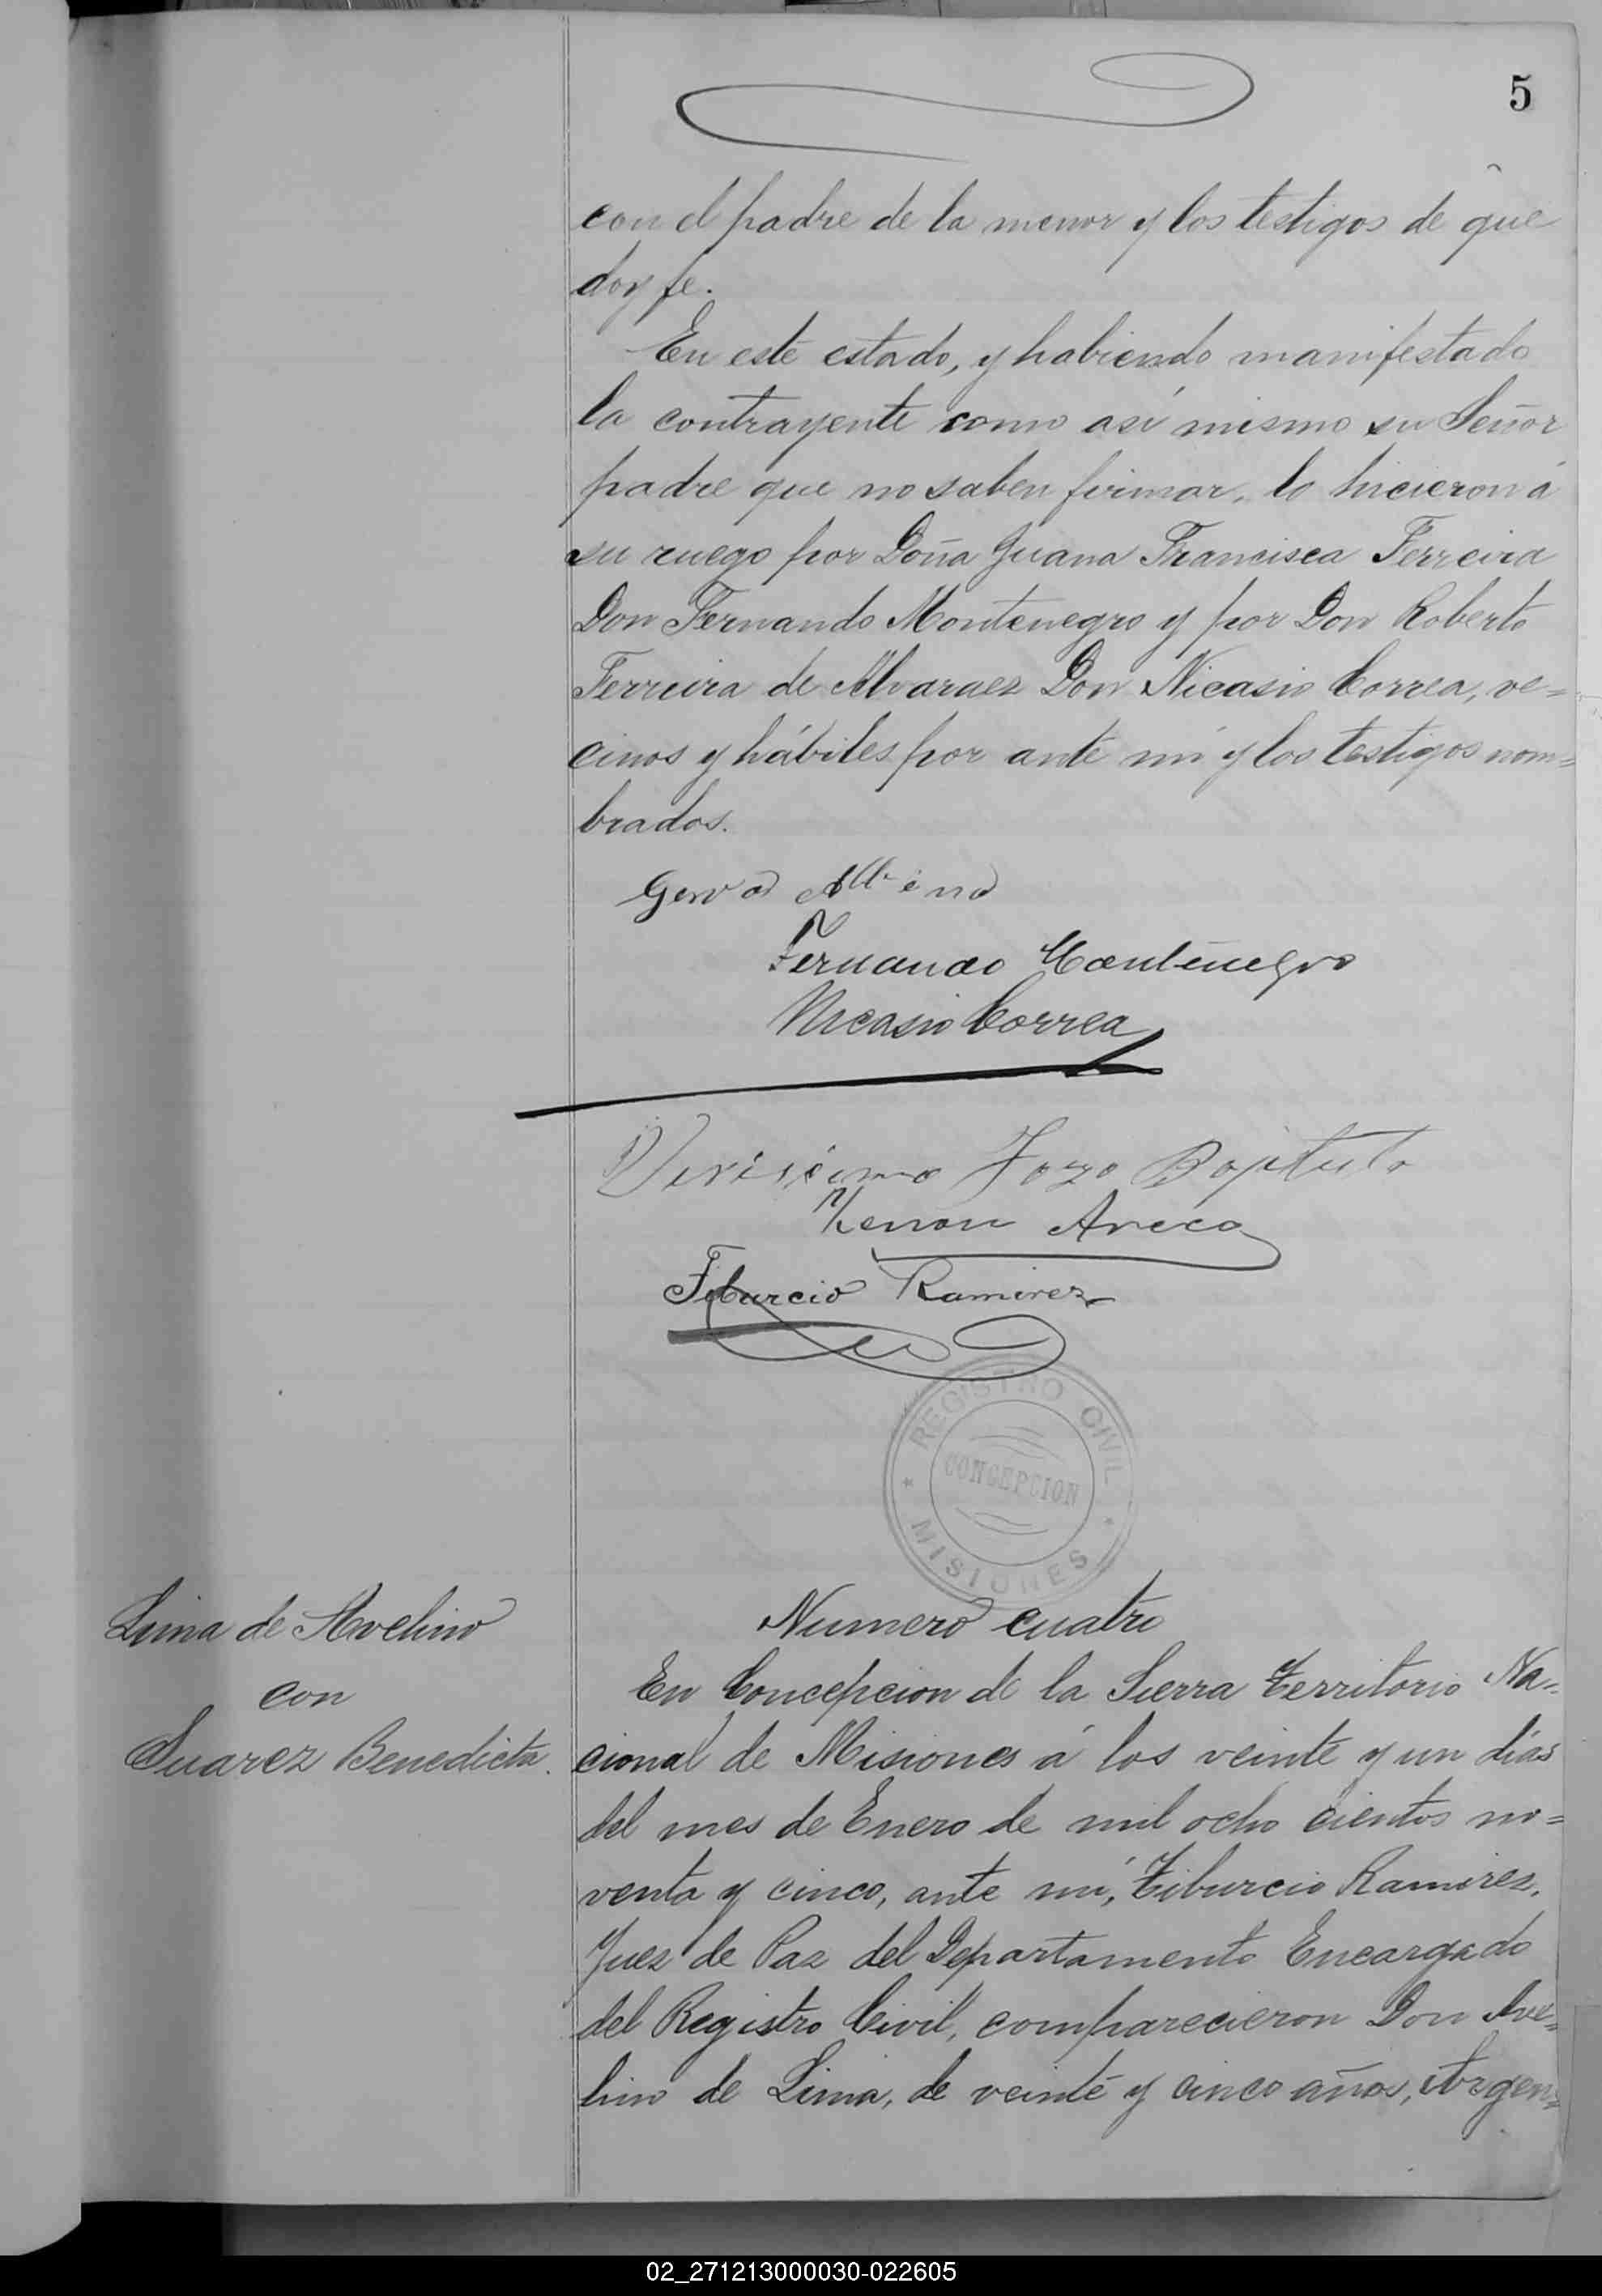 5
con el padre de la menor y los testigos de que
doy fe.
En este estado, y habiendo manifestado
la contrayente como así mismo su Señor
padre que no saben firmar, lo hicieron á
su ruego por Doña Juana Francisca Ferreira
Don Fernando Montenegro y por Don Roberto
Ferreira de Alvaraez Don Nicasio Correa, ve=
cinos y hábiles por ante mi y los testigos nom=
brados.
Fernando Montenegro
Nicasio Correa
Verisimo
Zenon Areco
Tiburcio Ramirez
REGISTRO CIVIL
CONCEPCION
MISIONES
Lima de Avelino
con
Suarez Benedicta.
Numero cuatro
En Concepcion de la Sierra Territorio Na=
cional de Misiones á los veinte y un días
del mes de Enero de mil ocho cientos no=
venta y cinco, ante mí, Tiburcio Ramirez,
Juez de Paz del Departamento Encargado
del Registro Civil, comparecieron Don Ave=
lino de Lima, de veinte y cinco años, Argen=
02_271213000030-022605